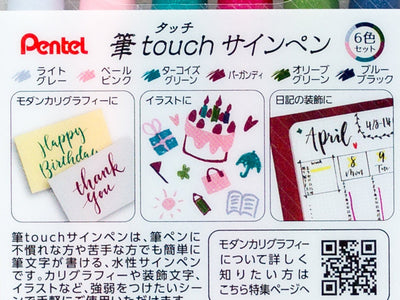 Pentel
タッチ
筆touchサインペン
6色
セット
ライト
グレー
ペール
ピンク
ターコイズ
グリーン
バーガンディ
オリーブ
グリーン
ブルー
ブラック
モダンカリグラフィーに
Happy
Birthday
thank
you
イラストに
日記の装飾に
April
4/8-14
8
Mon
9
Tue
筆touchサインペンは、筆ペンに
不慣れな方や苦手な方でも簡単に
筆文字が書ける、水性サインペン
です。カリグラフィーや装飾文字、
イラストなど、強弱をつけたいシー
ンで手軽にご使用いただけます。
モダンカリグラフィー
について詳しく
知りたい方は
こちら特集ページへ